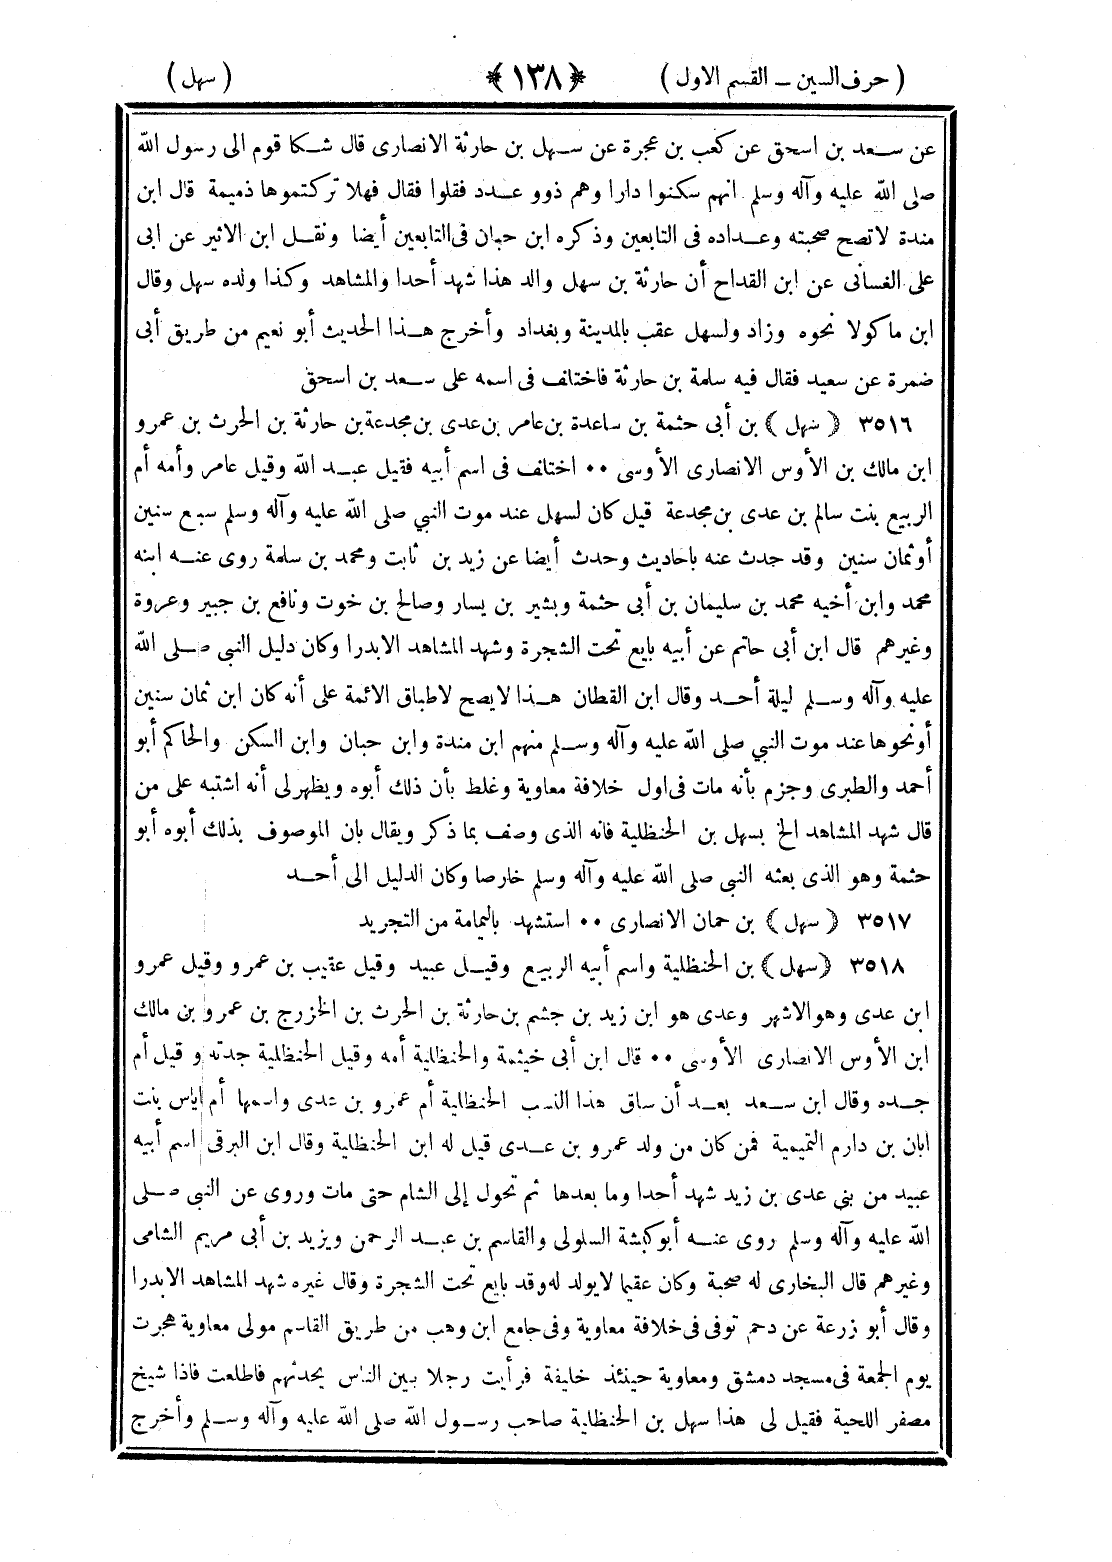 ( حرف السين ــ القسم الاول ) ﴿ ١٣٨ ﴾ ( سهل )
عن سعد بن اسحق عن كعب بن عجرة عن سهل بن حارثة الانصارى قال شكا قوم الى رسول الله
صلى الله عليه وآله وسلم انهم سكنوا دارا وهم ذوو عدد فقلوا فقال فهلا تركتموها ذميمة قال ابن
مندة لاتصح صحبته وعداده فى التابعين وذكره ابن حبان فى التابعين أيضا ونقل ابن الاثير عن ابى
على الغسانى عن ابن القداح أن حارثة بن سهل والد هذا شهد أحدا والمشاهد وكذا ولده سهل وقال
ابن ماكولا نحوه وزاد ولسهل عقب بالمدينة وبغداد وأخرج هذا الحديث أبو نعيم من طريق أبى
ضمرة عن سعيد فقال فيه سلمة بن حارثة فاختلف فى اسمه على سعد بن اسحق
٣٥١٦ ﴿ سهل ﴾ بن أبى حثمة بن ساعدة بن عامر بن عدى بن مجدعة بن حارثة بن الحرث بن عمرو
ابن مالك بن الأوس الانصارى الأوسى ٠٠ اختلف فى اسم أبيه فقيل عبد الله وقيل عامر وأمه أم
الربيع بنت سالم بن عدى بن مجدعة قيل كان لسهل عند موت النبي صلى الله عليه وآله وسلم سبع سنين
أوثمان سنين وقد حدث عنه باحاديث وحدث أيضا عن زيد بن ثابت ومحمد بن سلمة روى عنه ابنه
محمد وابن أخيه محمد بن سليمان بن أبى حثمة وبشير بن يسار وصالح بن خوت ونافع بن جبير وعروة
وغيرهم قال ابن أبى حاتم عن أبيه بايع تحت الشجرة وشهد المشاهد الابدرا وكان دليل النبى صلى الله
عليه وآله وسلم ليلة أحد وقال ابن القطان هذا لايصح لاطباق الائمة على أنه كان ابن ثمان سنين
أونحوها عند موت النبي صلى الله عليه وآله وسلم منهم ابن مندة وابن حبان وابن السكن والحاكم أبو
أحمد والطبرى وجزم بأنه مات فى اول خلافة معاوية وغلط بأن ذلك أبوه ويظهرلى أنه اشتبه على من
قال شهد المشاهد الخ بسهل بن الحنظلية فانه الذى وصف بما ذكر ويقال بان الموصوف بذلك أبوه أبو
حثمة وهو الذى بعثه النبى صلى الله عليه وآله وسلم خارصا وكان الدليل الى أحد
٣٥١٧ ﴿ سهل ﴾ بن حمان الانصارى ٠٠ استشهد باليمامة من التجريد
٣٥١٨ ﴿ سهل ﴾ بن الحنظلية واسم أبيه الربيع وقيل عبيد وقيل عقيب بن عمرو وقيل عمرو
ابن عدى وهوالاشهر وعدى هو ابن زيد بن جشم بن حارثة بن الحرث بن الخزرج بن عمرو بن مالك
ابن الأوس الانصارى الأوسى ٠٠ قال ابن أبى خيثمة والحنظلية أمه وقيل الحنظلية جدته وقيل أم
جده وقال ابن سعد بعد أن ساق هذا النسب الحنظلية أم عمرو بن عدى واسمها أم اياس بنت
ابان بن دارم التميمية فمن كان من ولد عمرو بن عدى قيل له ابن الحنظلية وقال ابن البرقى اسم أبيه
عبيد من بنى عدى بن زيد شهد أحدا وما بعدها ثم تحول إلى الشام حتى مات وروى عن النبى صلى
الله عليه وآله وسلم روى عنه أبو كبشة السلولى والقاسم بن عبد الرحمن ويزيد بن أبى مريم الشامى
وغيرهم قال البخارى له صحبة وكان عقيما لايولد له وقد بايع تحت الشجرة وقال غيره شهد المشاهد الابدرا
وقال أبو زرعة عن دحم توفى فى خلافة معاوية وفى جامع ابن وهب من طريق القاسم مولى معاوية هجرت
يوم الجمعة فى مسجد دمشق ومعاوية حينئذ خليفة فرأيت رجلا بين الناس يحدثهم فاطلعت فاذا شيخ
مصفر اللحية فقيل لى هذا سهل بن الحنظلية صاحب رسول الله صلى الله عليه وآله وسلم وأخرج